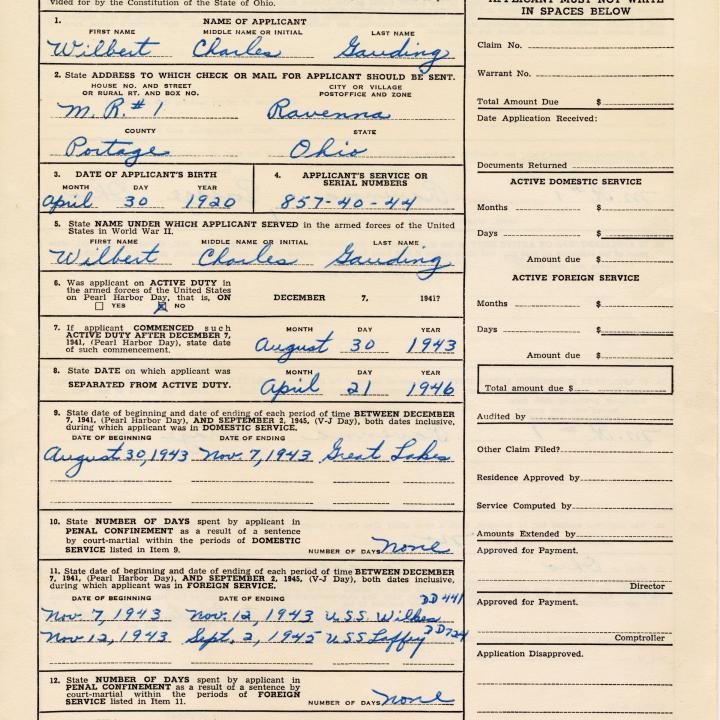 vided for by the Constitution of the State of Ohio.
1. NAME OF APPLICANT
FIRST NAME MIDDLE NAME OR INITIAL LAST NAME
Wilbert Charles Gauding
2. State ADDRESS TO WHICH CHECK OR MAIL FOR APPLICANT SHOULD BE SENT.
HOUSE NO. AND STREET CITY OR VILLAGE
OR RURAL RT. AND BOX NO. POSTOFFICE AND ZONE
M. R. #1 Ravenna
COUNTY STATE
Portage Ohio
3. DATE OF APPLICANT'S BIRTH
MONTH DAY YEAR
April 30 1920
4. APPLICANT'S SERVICE OR
SERIAL NUMBERS
857-40-44
5. State NAME UNDER WHICH APPLICANT SERVED in the armed forces of the United
States in World War II.
FIRST NAME MIDDLE NAME OR INITIAL LAST NAME
Wilbert Charles Gauding
6. Was applicant on ACTIVE DUTY in
the armed forces of the United States
on Pearl Harbor Day, that is, ON DECEMBER 7, 1941?
YES NO
7. If applicant COMMENCED such
ACTIVE DUTY AFTER DECEMBER 7,
1941, (Pearl Harbor Day), state date
of such commencement.
MONTH DAY YEAR
August 30 1943
8. State DATE on which applicant was
SEPARATED FROM ACTIVE DUTY.
MONTH DAY YEAR
April 21 1946
9. State date of beginning and date of ending of each period of time BETWEEN DECEMBER
7, 1941, (Pearl Harbor Day), AND SEPTEMBER 2, 1945, (V-J Day), both dates inclusive,
during which applicant was in DOMESTIC SERVICE.
DATE OF BEGINNING DATE OF ENDING
August 30, 1943 Nov. 7, 1943 Great Lakes
10. State NUMBER OF DAYS spent by applicant in
PENAL CONFINEMENT as a result of a sentence
by court-martial within the periods of DOMESTIC
SERVICE listed in Item 9. NUMBER OF DAYS none
11. State date of beginning and date of ending of each period of time BETWEEN DECEMBER
7, 1941, (Pearl Harbor Day), AND SEPTEMBER 2, 1945, (V-J Day), both dates inclusive,
during which applicant was in FOREIGN SERVICE.
DATE OF BEGINNING DATE OF ENDING DD 441
Nov. 7, 1943 Nov. 12, 1943 U.S.S. Wilkes
Nov 12, 1943 Sept. 2, 1945 U S S Laffey DD724
12. State NUMBER OF DAYS spent by applicant in
PENAL CONFINEMENT as a result of a sentence by
court-martial within the periods of FOREIGN
SERVICE listed in Item 11. NUMBER OF DAYS none
APPLICANT MUST NOT WRITE
IN SPACES BELOW
Claim No.
Warrant No.
Total Amount Due $
Date Application Received:
Documents Returned
ACTIVE DOMESTIC SERVICE
Months $
Days $
Amount due $
ACTIVE FOREIGN SERVICE
Months $
Days $
Amount due $
Total amount due $
Audited by
Other Claim Filed?
Residence Approved by
Service Computed by
Amounts Extended by
Approved for Payment.
Director
Approved for Payment.
Comptroller
Application Disapproved.